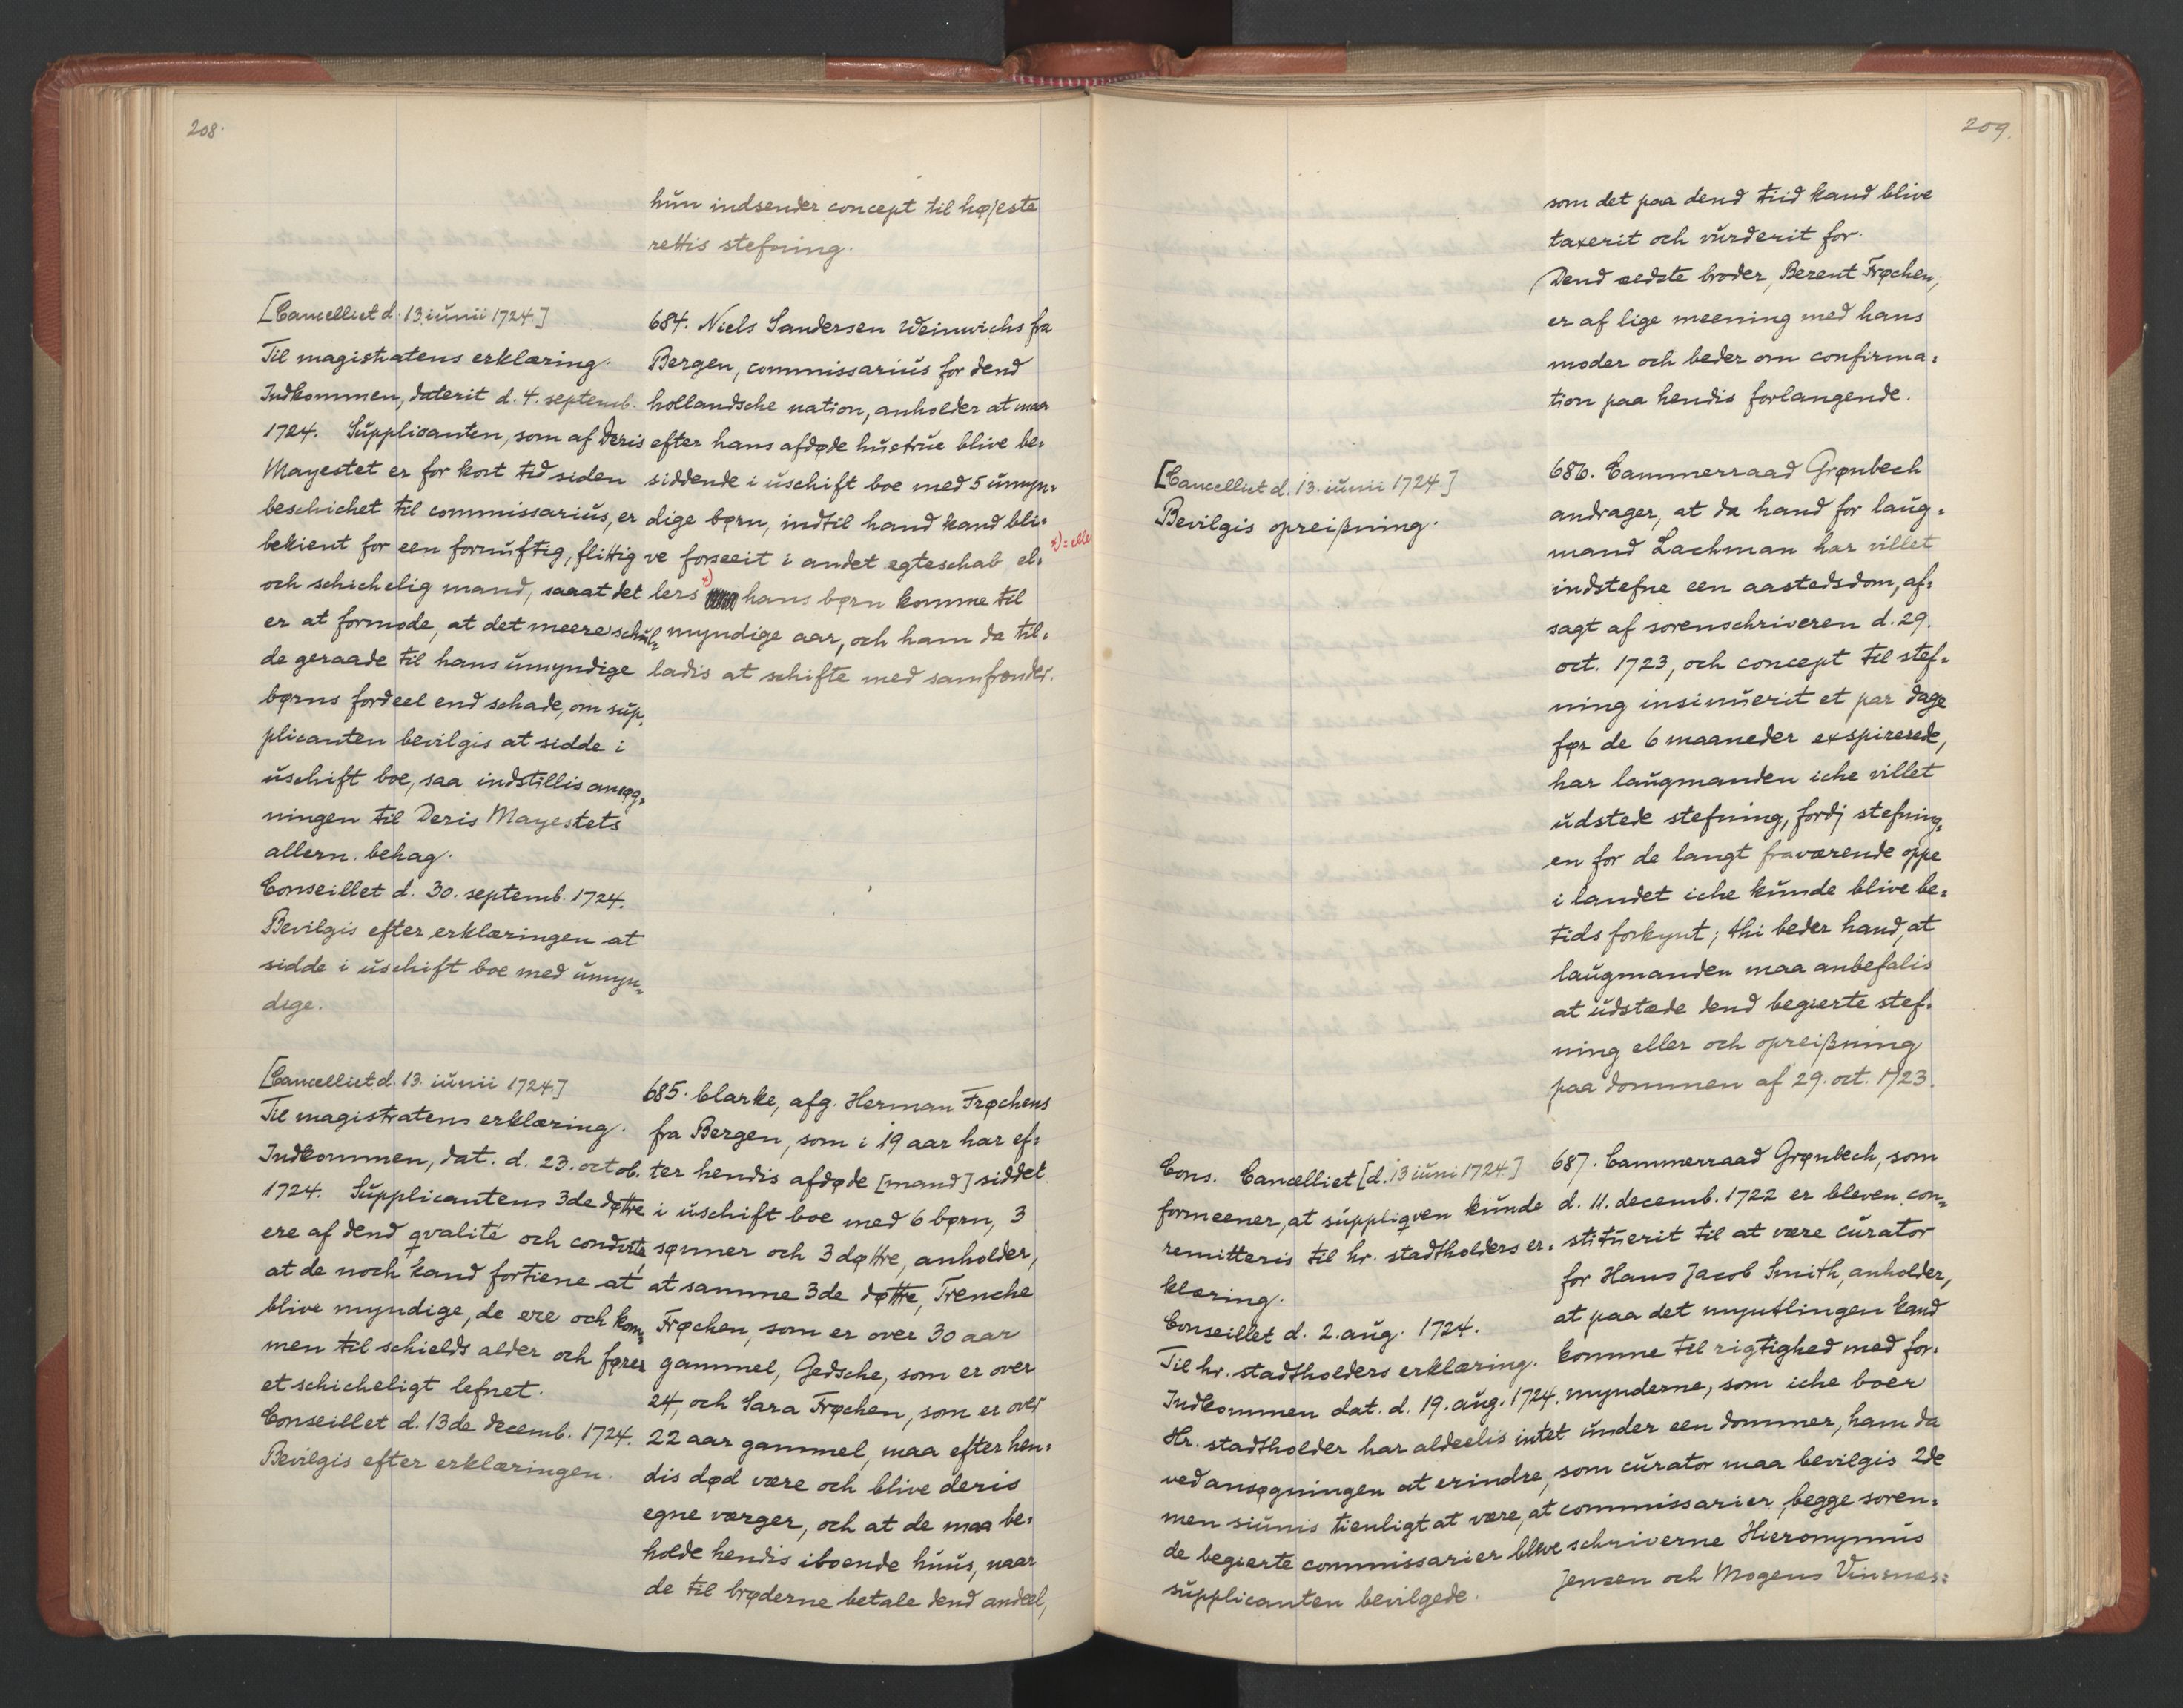 208.
hun indsender concept til højeste
rettis stefning.
[Cancelliet d. 13. iunii 1724.]
Til magistratens erklæring.
Indkommen, daterit d. 4. septemb.
1724. Supplicanten, som af Deris
Mayestet er for kort tid siden
beschichet til commissarius, er
bekient for een fornuftig, flittig
och schichelig mand, saa at det
er at formode, at det meere schul=
de geraade til hans umyndige
børns fordeel end schade, om sup=
plicanten bevilgis at sidde i
uschift boe, saa indstillis ansøg=
ningen til Deris Mayestets
allern. behag.
Conseillet d. 30. septemb. 1724.
Bevilgis efter erklæringen at
sidde i uschift boe med umyn=
dige.
684. Niels Sandersen Weinwichs fra
Bergen, commissarius for dend
hollandsche nation, anholder at maa
efter hans afdøde hustrue blive be=
siddende i uschift boe med 5 umyn=
dige børn, indtil hand kand bli=
ve forseeit i andet egteschab el=
lers x) hans børn komme til
myndige aar, och ham da til=
ladis at schifte med samfrender.
x) = eller
[Cancelliet d. 13. iunii 1724.]
Til magistratens erklæring.
Indkommen, dat. d. 23. octob.
1724. Supplicantens 3de døttre
ere af dend qvalité och conduite,
at de noch kand fortiene at
blive myndige, de ere och kom=
men til schields alder och fører
et schicheligt lefnet.
Conseillet d. 13de decemb. 1724.
Bevilgis efter erklæringen.
685. Clarke, afg. Herman Frøchens
fra Bergen, som i 19 aar har ef=
ter hendis afdøde [mand] siddet
i uschift boe med 6 børn, 3
sønner och 3 døttre, anholder,
at samme 3de døttre, Trenche
Frøchen, som er over 30 aar
gammel, Gedsche, som er over
24, och Sara Frøchen, som er over
22 aar gammel, maa efter hen=
dis død være och blive deris
egne værger, och at de maa be=
holde hendis iboende huus, naar
de til brøderne betale dend andeel,
209.
som det paa dend tiid kand blive
taxerit och vurderit for.
Dend ædste broder, Berent Frøchen,
er af lige meening med hans
moder och beder om confirma=
tion paa hendis forlangende.
[Cancelliet d. 13. iunii 1724.]
Bevilgis opreißning.
686. Cammerraad Grønbech
andrager, at da hand for laug=
mand Lachman har villet
indstefne een aastedsdom, af=
sagt af sorenschriveren d. 29.
oct. 1723, och concept til stef=
ning insinuerit et par dage
før de 6 maaneder exspirerede,
har laugmanden iche villet
udstede stefning, fordj stefning=
en for de langt fraværende oppe
i landet iche kunde blive be=
tids forkynt; thi beder hand, at
laugmanden maa anbefalis
at udstæde dend begierte stef=
ning eller och opreißning
paa dommen af 29. oct. 1723.
Cons. Cancelliet [d. 13 iuni 1724]
formeener, at suppliqven kunde
remitteris til hr. stadtholders er=
klæring.
Conseillet d. 2. aug. 1724.
Til hr. stadtholders erklæring.
Indkommen dat. d. 19. aug. 1724.
Hr. stadtholder har aldeelis intet
ved ansøgningen at erindre,
men siunis tienligt at være, at
de begierte commissarier blive
supplicanten bevilgede.
687. Cammerraad Grønbech, som
d. 11. decemb. 1722 er bleven con=
stituerit til at være curator
for Hans Jacob Smith, anholder,
at paa det myntlingen kand
komme til rigtighed med for=
mynderne, som iche boer
under een dommer, ham da
som curator maa bevilgis 2de
commissarier, begge soren=
schriverne Hieronymus
Jensen och Mogens Vinsnes=